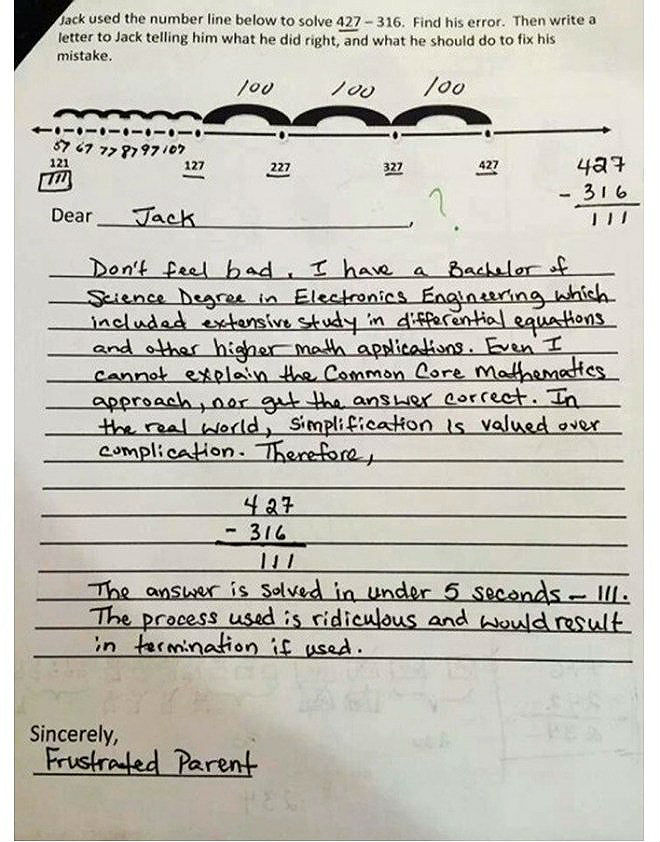 Jack used the number line below to solve 427 – 316. Find his error. Then write a
letter to Jack telling him what he did right, and what he should do to fix his
mistake.
100 100 100
57 67 77 87 97 107
121 127 227 327 427
111
427
- 316
111
Dear Jack ,
?
Don't feel bad. I have a Bachelor of
Science Degree in Electronics Engineering which
included extensive study in differential equations
and other higher math applications. Even I
cannot explain the Common Core Mathematics
approach, nor get the answer correct. In
the real world, simplification is valued over
complication. Therefore,
427
- 316
111
The answer is solved in under 5 seconds – 111.
The process used is ridiculous and would result
in termination if used.
Sincerely,
Frustrated Parent